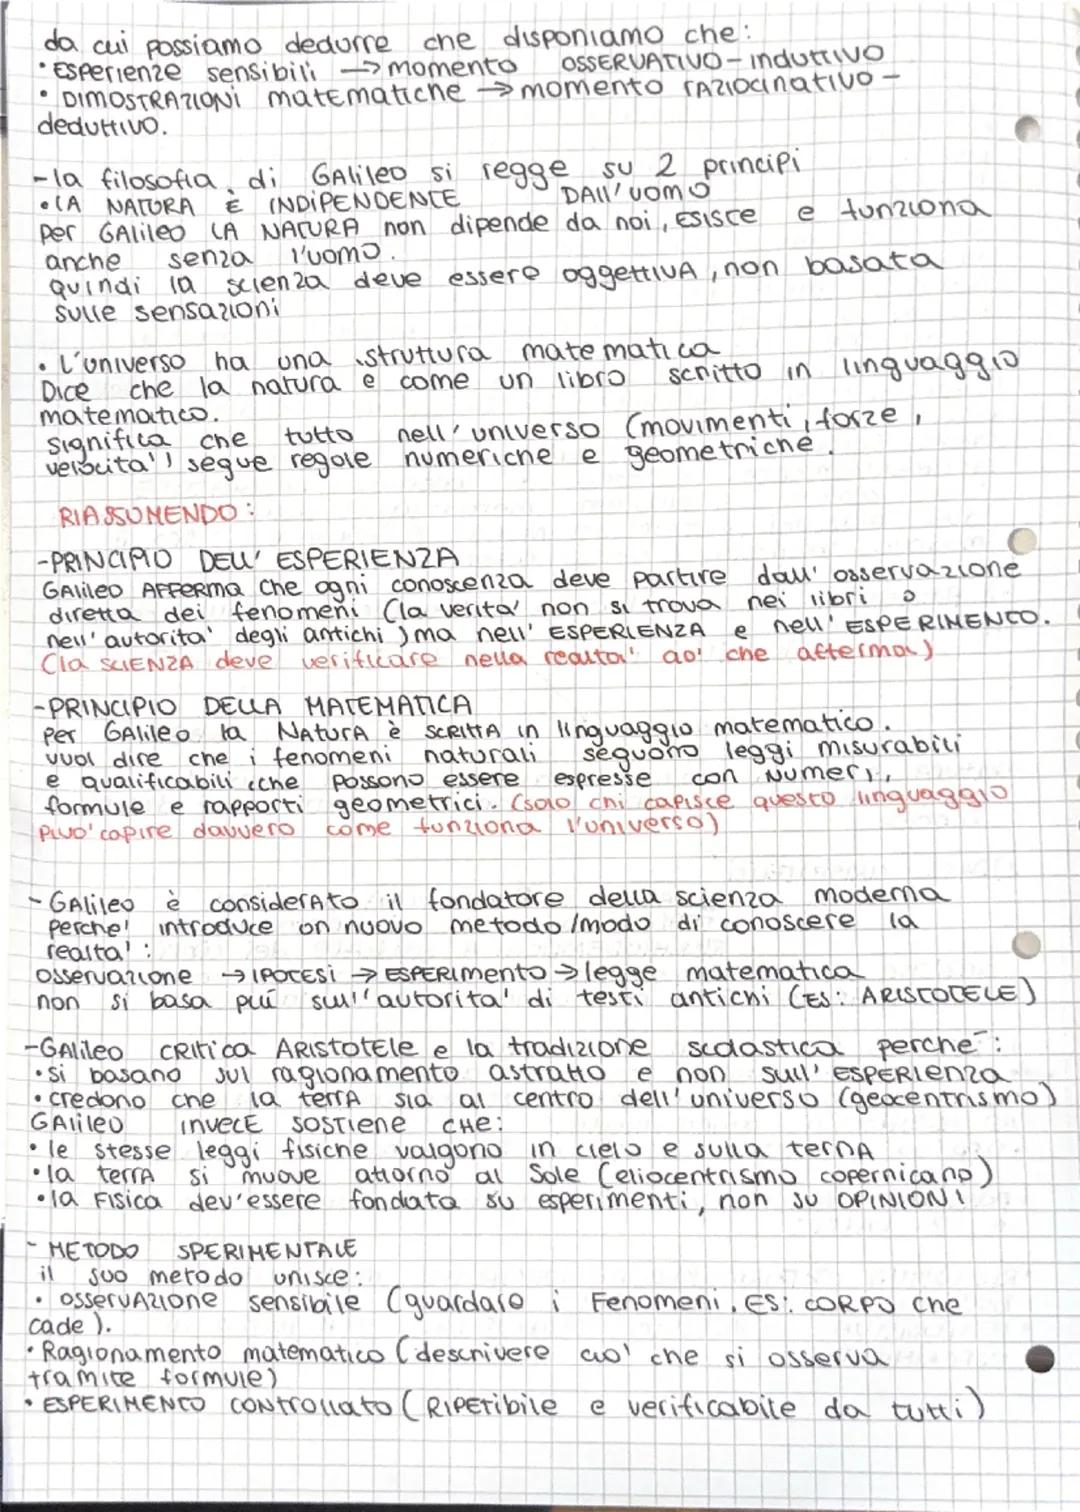 da cui possiamo dedurre che disponiamo che:
• Esperienze sensibili → momento OSSERVATIVO - induttivo
• DIMOSTRAZIONI matematiche → momento raziocinativo -
deduttivo.
- la filosofia di Galileo si regge su 2 principi
• LA NATURA È INDIPENDENTE DALL'UOMO
Per Galileo LA NATURA non dipende da noi, esisce e funziona
anche senza l'uomo.
quindi la scienza deve essere oggettiva, non basata
sulle sensazioni
• L'universo ha una struttura matematica
Dice che la natura e come un libro scritto in linguaggio
matematico.
significa che tutto nell'universo (movimenti, forze,
velocita') segue regole numeriche e geometriche.
RIASSUMENDO:
- PRINCIPIO DELL' ESPERIENZA
Galileo AFFERMA che ogni conoscenza deve partire dall'osservazione
diretta dei fenomeni (la verita' non si trova nei libri o
nell'autorita' degli antichi) ma nell' ESPERIENZA e nell' ESPERIMENTO.
(la SCIENZA deve verificare nella realta' cio' che afferma)
- PRINCIPIO DELLA MATEMATICA
Per Galileo la NATURA è SCRITTA in linguaggio matematico.
vuol dire che i fenomeni naturali seguono leggi misurabili
e qualificabili, che possono essere espresse con numeri,
formule e rapporti geometrici. (solo chi capisce questo linguaggio
puo' capire davvero come funziona l'universo)
- Galileo è considerato il fondatore della scienza moderna
perche' introduce un nuovo metodo/modo di conoscere la
realta':
osservazione → IPOTESI → ESPERIMENTO → legge matematica
non si basa puí sull'autorita' di testi antichi (ES: ARISTOTELE)
- Galileo CRITICA ARISTOTELE e la tradizione scolastica perche':
• si basano sul ragionamento astratto e non sull' ESPERIENZA
• credono che la terra sia al centro dell'universo (geocentrismo)
GALILEO INVECE SOSTIENE CHE:
• le stesse leggi fisiche valgono in cielo e sulla terra
• la terra si muove attorno al Sole (eliocentrismo copernicano)
• la FISICA dev'essere fondata su esperimenti, non su OPINIONI
- METODO SPERIMENTALE
il suo metodo unisce:
• osservazione sensibile (guardare i Fenomeni. ES: CORPO che
cade).
• Ragionamento matematico (descrivere cio' che si osserva
tramite formule)
• ESPERIMENTO controllato (RIPETIBILE e verificabile da tutti)